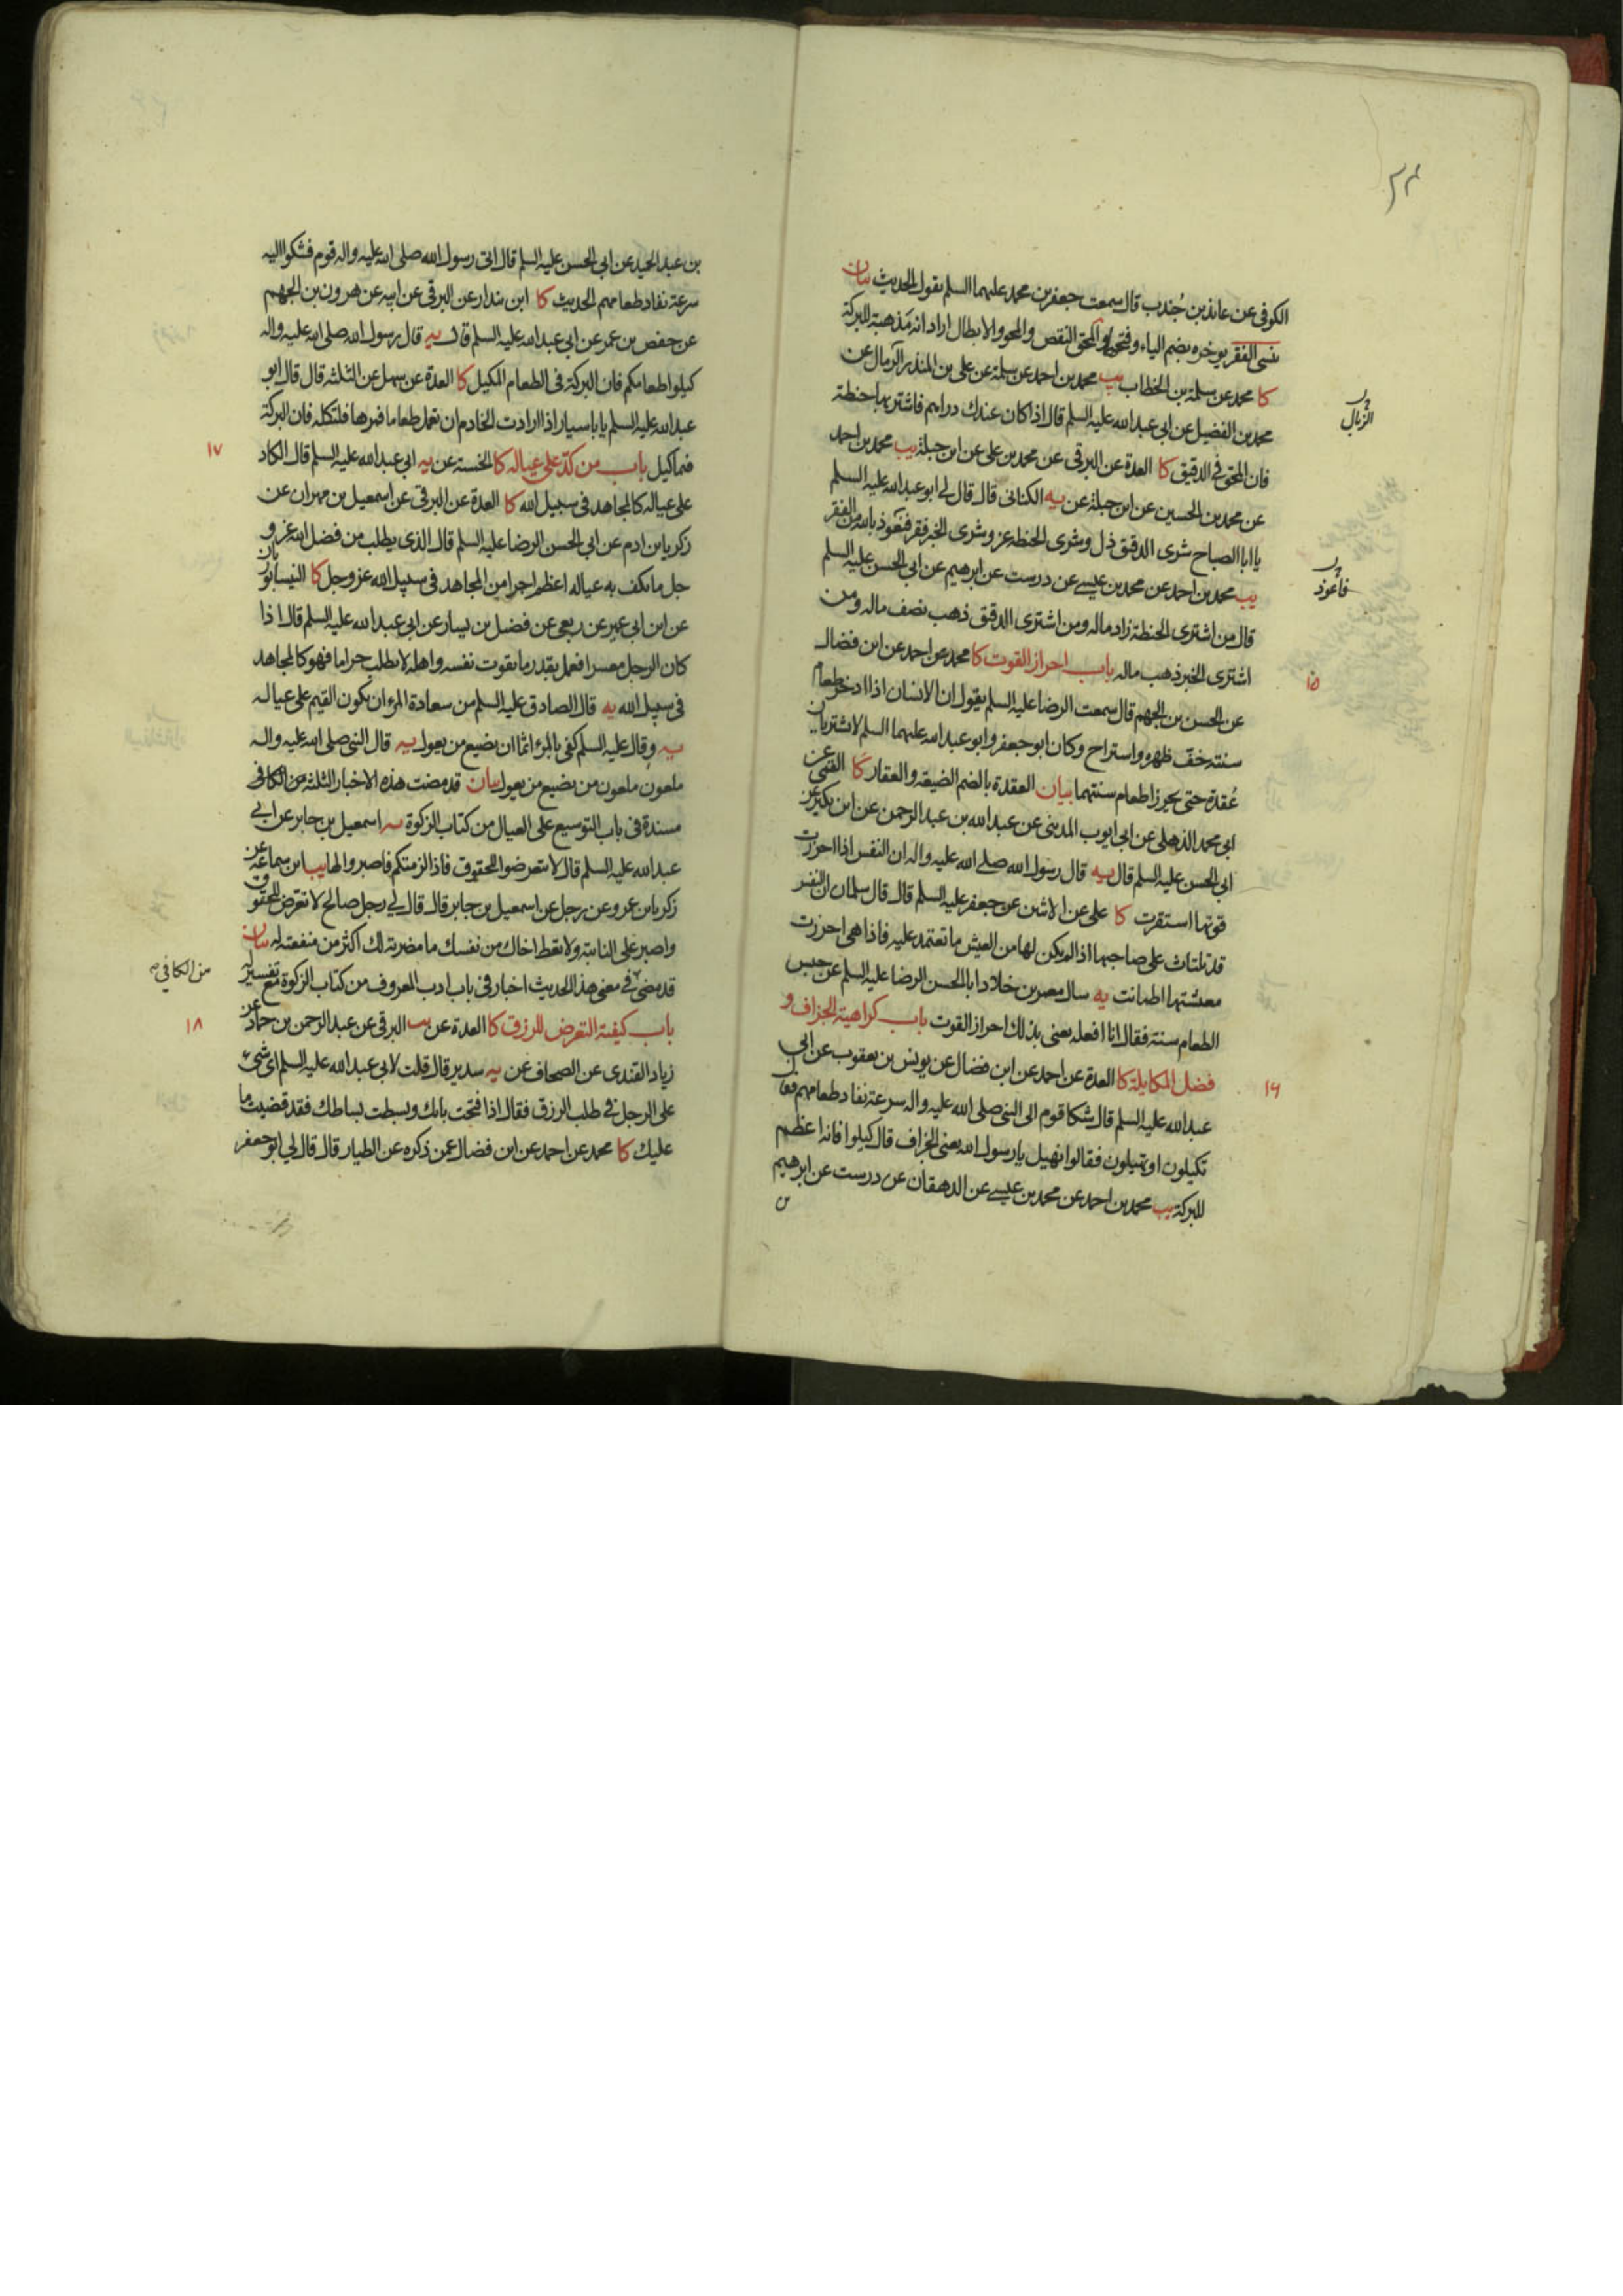 ٢٤
الكوفى عن عايذ بن جُندب قال سمعت جعفر بن محمد عليهما السلم يقول الحديث بيان
ينسى الفقر يوخره بضم الياء وفتحها والمحق النقص والمحو والابطال اراد انه مَذهبة للبركة
كا محمد عن سلمة بن الخطاب يب محمد بن احمد عن سلمة عن على بن المنذر الزّمال عن
الزبال
محمد بن الفضيل عن ابى عبد الله عليه السلم قال اذا كان عندك دراهم فاشتر بها حنطة
فان المحق فى الدقيق كا العدة عن البرقى عن محمد بن على عن ابن جبلة يب محمد بن احمد
عن محمد بن الحسين عن ابن جبلة عن يه الكنانى قال قال لى ابو عبد الله عليه السلم
يا ابا الصباح شرى الدقيق ذل وشرى الحنطة عز وشرى الخبز فقر فنعوذ بالله من الفقر
فاعوذ
يب محمد بن احمد عن محمد بن عيسے عن درست عن ابرهيم عن ابى الحسن عليه السلم
قال من اشترى الحنطة زاد ماله ومن اشترى الدقيق ذهب نصف ماله ومن
اشترى الخبز ذهب ماله باب احراز القوت كا محمد عن احمد عن ابن فضال
١٥
عن الحسن بن الجهم قال سمعت الرضا عليه السلم يقول ان الانسان اذا ادخر طعام
سنته خف ظهره واستراح وكان ابو جعفر وابو عبد الله عليهما السلم لا يشتريان
عُقدة حتى يحرزا طعام سنتهما بيان العقدة بالضم الضيعة والعقار كا القمى عن
ابى محمد الذهلى عن ابى ايوب المدينى عن عبد الله بن عبد الرحمن عن ابن بكير عن
ابى الحسن عليه السلم قال يه قال رسول الله صلے الله عليه واله ان النفس اذا احرزت
قوتها استقرت كا على عن الاثنين عن جعفر عليه السلم قال قال سلمان ان النفس
قد تلتاث على صاحبها اذا لم يكن لها من العيش ما تعتمد عليه فاذا هى احرزت
معيشتها اطمانت يه سال معمر بن خلاد ابا الحسن الرضا عليه السلم عن حبس
الطعام سنة فقال انا افعله يعنى بذلك احراز القوت باب كراهية الجزاف و
فضل المكايلة كا العدة عن احمد عن ابن فضال عن يونس بن يعقوب عن ابى
١٦
عبد الله عليه السلم قال شكا قوم الى النبى صلى الله عليه واله سرعة نفاد طعامهم فقال
تكيلون او تهيلون فقالوا نهيل يا رسول الله يعنى الجزاف قال كيلوا فانه اعظم
للبركة يب محمد بن احمد عن محمد بن عيسے عن الدهقان عن درست عن ابرهيم
بن
بن عبد الحميد عن ابى الحسن عليه السلم قال اتى رسول الله صلى الله عليه واله قوم فشكوا اليه
سرعة نفاد طعامهم الحديث كا ابن بندار عن البرقى عن ابيه عن هرون بن الجهم
عن حفص بن عمر عن ابى عبد الله عليه السلم قال يه قال رسول الله صلى الله عليه واله
كيلوا طعامكم فان البركة فى الطعام المكيل كا العدة عن سهل عن الثلثة قال قال ابو
عبد الله عليه السلم يا با سيار اذا ارادت الخادم ان تعمل طعاما فمرها فلتكله فان البركة
فيما كيل باب من كدّ على عياله كا الخمسة عن يه ابى عبد الله عليه السلم قال الكاد
١٧
على عياله كالمجاهد فى سبيل الله كا العدة عن البرقى عن اسمعيل بن مهران عن
زكريا بن ادم عن ابى الحسن الرضا عليه السلم قال الذى يطلب من فضل الله عز و
جل ما يكف به عياله اعظم اجرا من المجاهد فى سبيل الله عز وجل كا النيسابوريان
عن ابن ابى عمير عن ربعى عن فضيل بن يسار عن ابى عبد الله عليه السلم قال اذا
كان الرجل معسرا فعمل بقدر ما يقوت نفسه واهله لا يطلب حراما فهو كالمجاهد
فى سبيل الله يه قال الصادق عليه السلم من سعادة المرء ان يكون القيم على عياله
يه وقال عليه السلم كفى بالمرء اثما ان يضيع من يعول يه قال النبى صلى الله عليه واله
ملعون ملعون من يضيع من يعول بيان قد مضت هذه الاخبار الثلثة من الكافى
مسندة فى باب التوسيع على العيال من كتاب الزكوة يه اسمعيل بن جابر عن ابے
عبد الله عليه السلم قال لا تتعرضوا للحقوق فاذا لزمتكم فاصبروا لها يب ابن سماعة عن
زكريا بن عمرو عن رجل عن اسمعيل بن جابر قال قال لى رجل صالح لا تعرض للحقوق
واصبر على النائبة ولا تعط اخاك من نفسك ما مضرته لك اكثر من منفعته له بيان
قد مضى فى معنى هذا الحديث اخبار فى باب ادب المعروف من كتاب الزكوة مع تفسير له
من الكافي صح
باب كيفية التعرض للرزق كا العدة عن يب البرقى عن عبد الرحمن بن حماد عن
١٨
زياد القندى عن الصحاف عن يه سدير قال قلت لابى عبد الله عليه السلم اى شئ
على الرجل فى طلب الرزق فقال اذا فتحت بابك وبسطت بساطك فقد قضيت ما
عليك كا محمد عن احمد عن ابن فضال عمن ذكره عن الطيار قال قال لى ابو جعفر